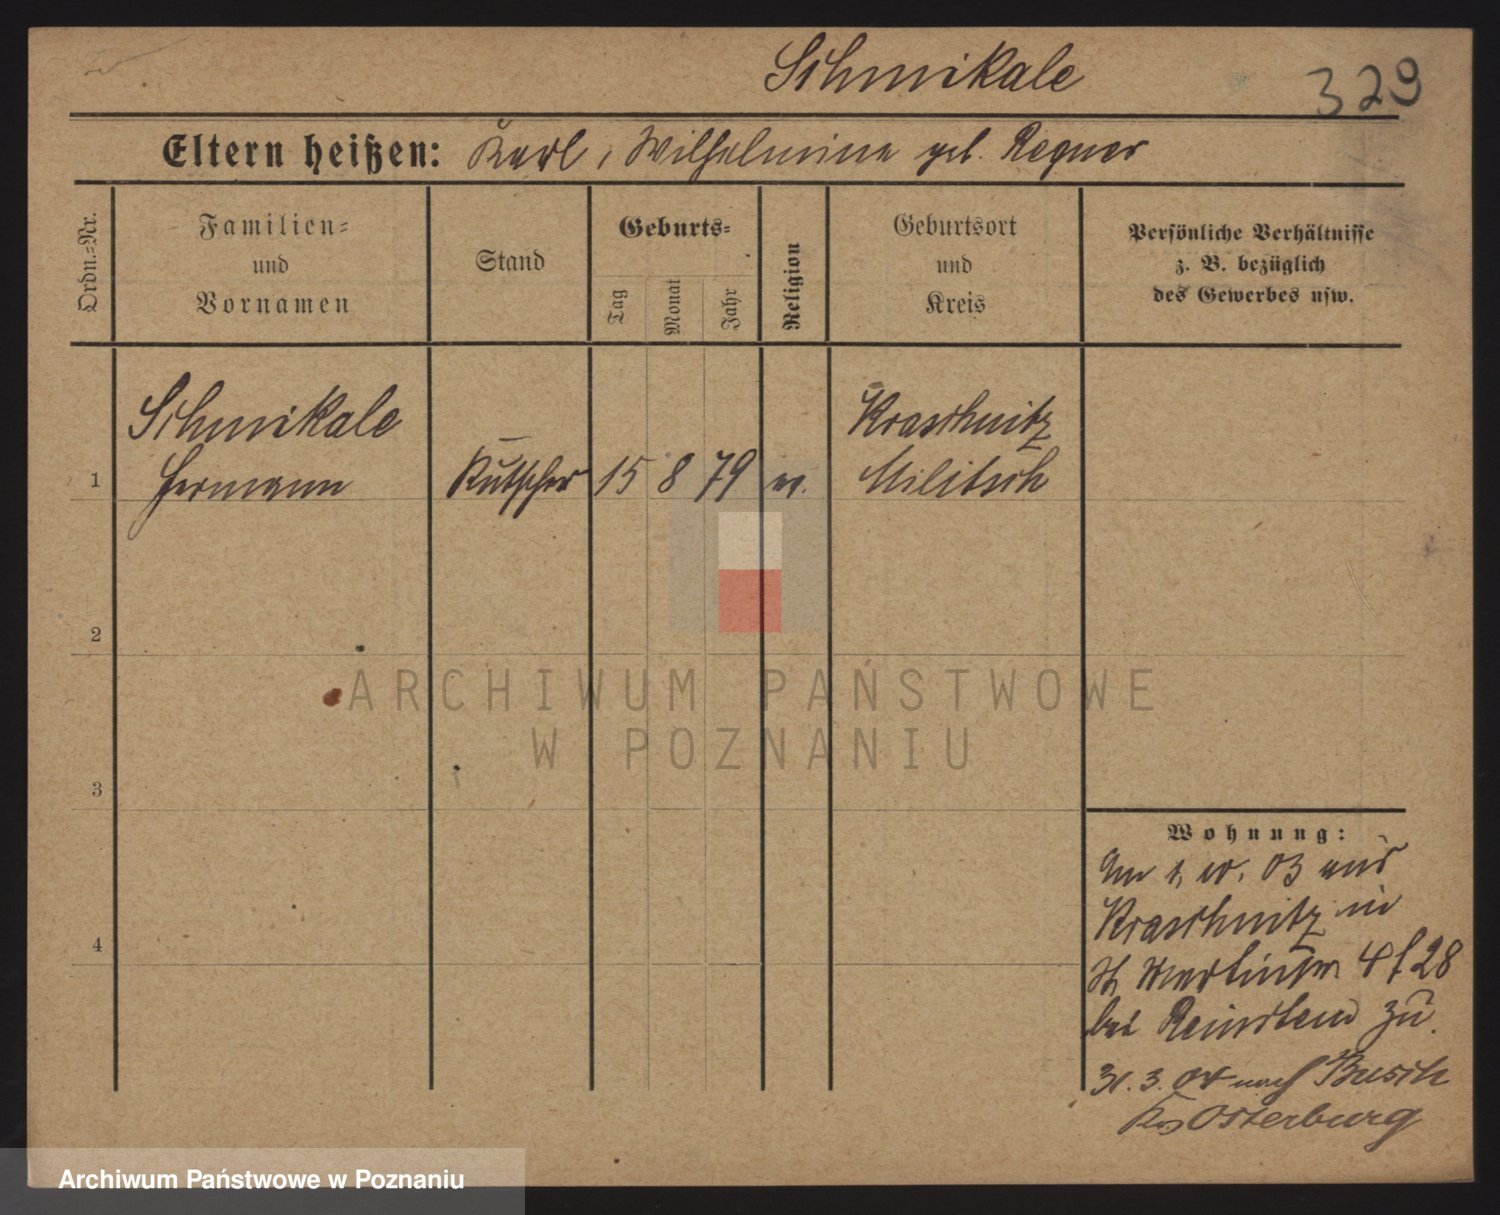 Schmikale
329
Eltern heißen: Karl, Wilhelmine geb. Regner
Ordn.-Nr.
Familien-
und
Vornamen
Stand
Geburts-
Tag
Monat
Jahr
Religion
Geburtsort
und
Kreis
Persönliche Verhältnisse
z. B. bezüglich
des Gewerbes usw.
Schmikale
Kraschnitz
1 Hermann Kutscher 15 8 79 ev. Militsch
2
ARCHIWUM PAŃSTWOWE
W POZNANIU
3
4
Wohnung:
Am 1. 03 aus
Kraschnitz in
St. Martinstr. 28
bei zu.
31.3.04 nach Busch
Krs Osterburg
Archiwum Państwowe w Poznaniu